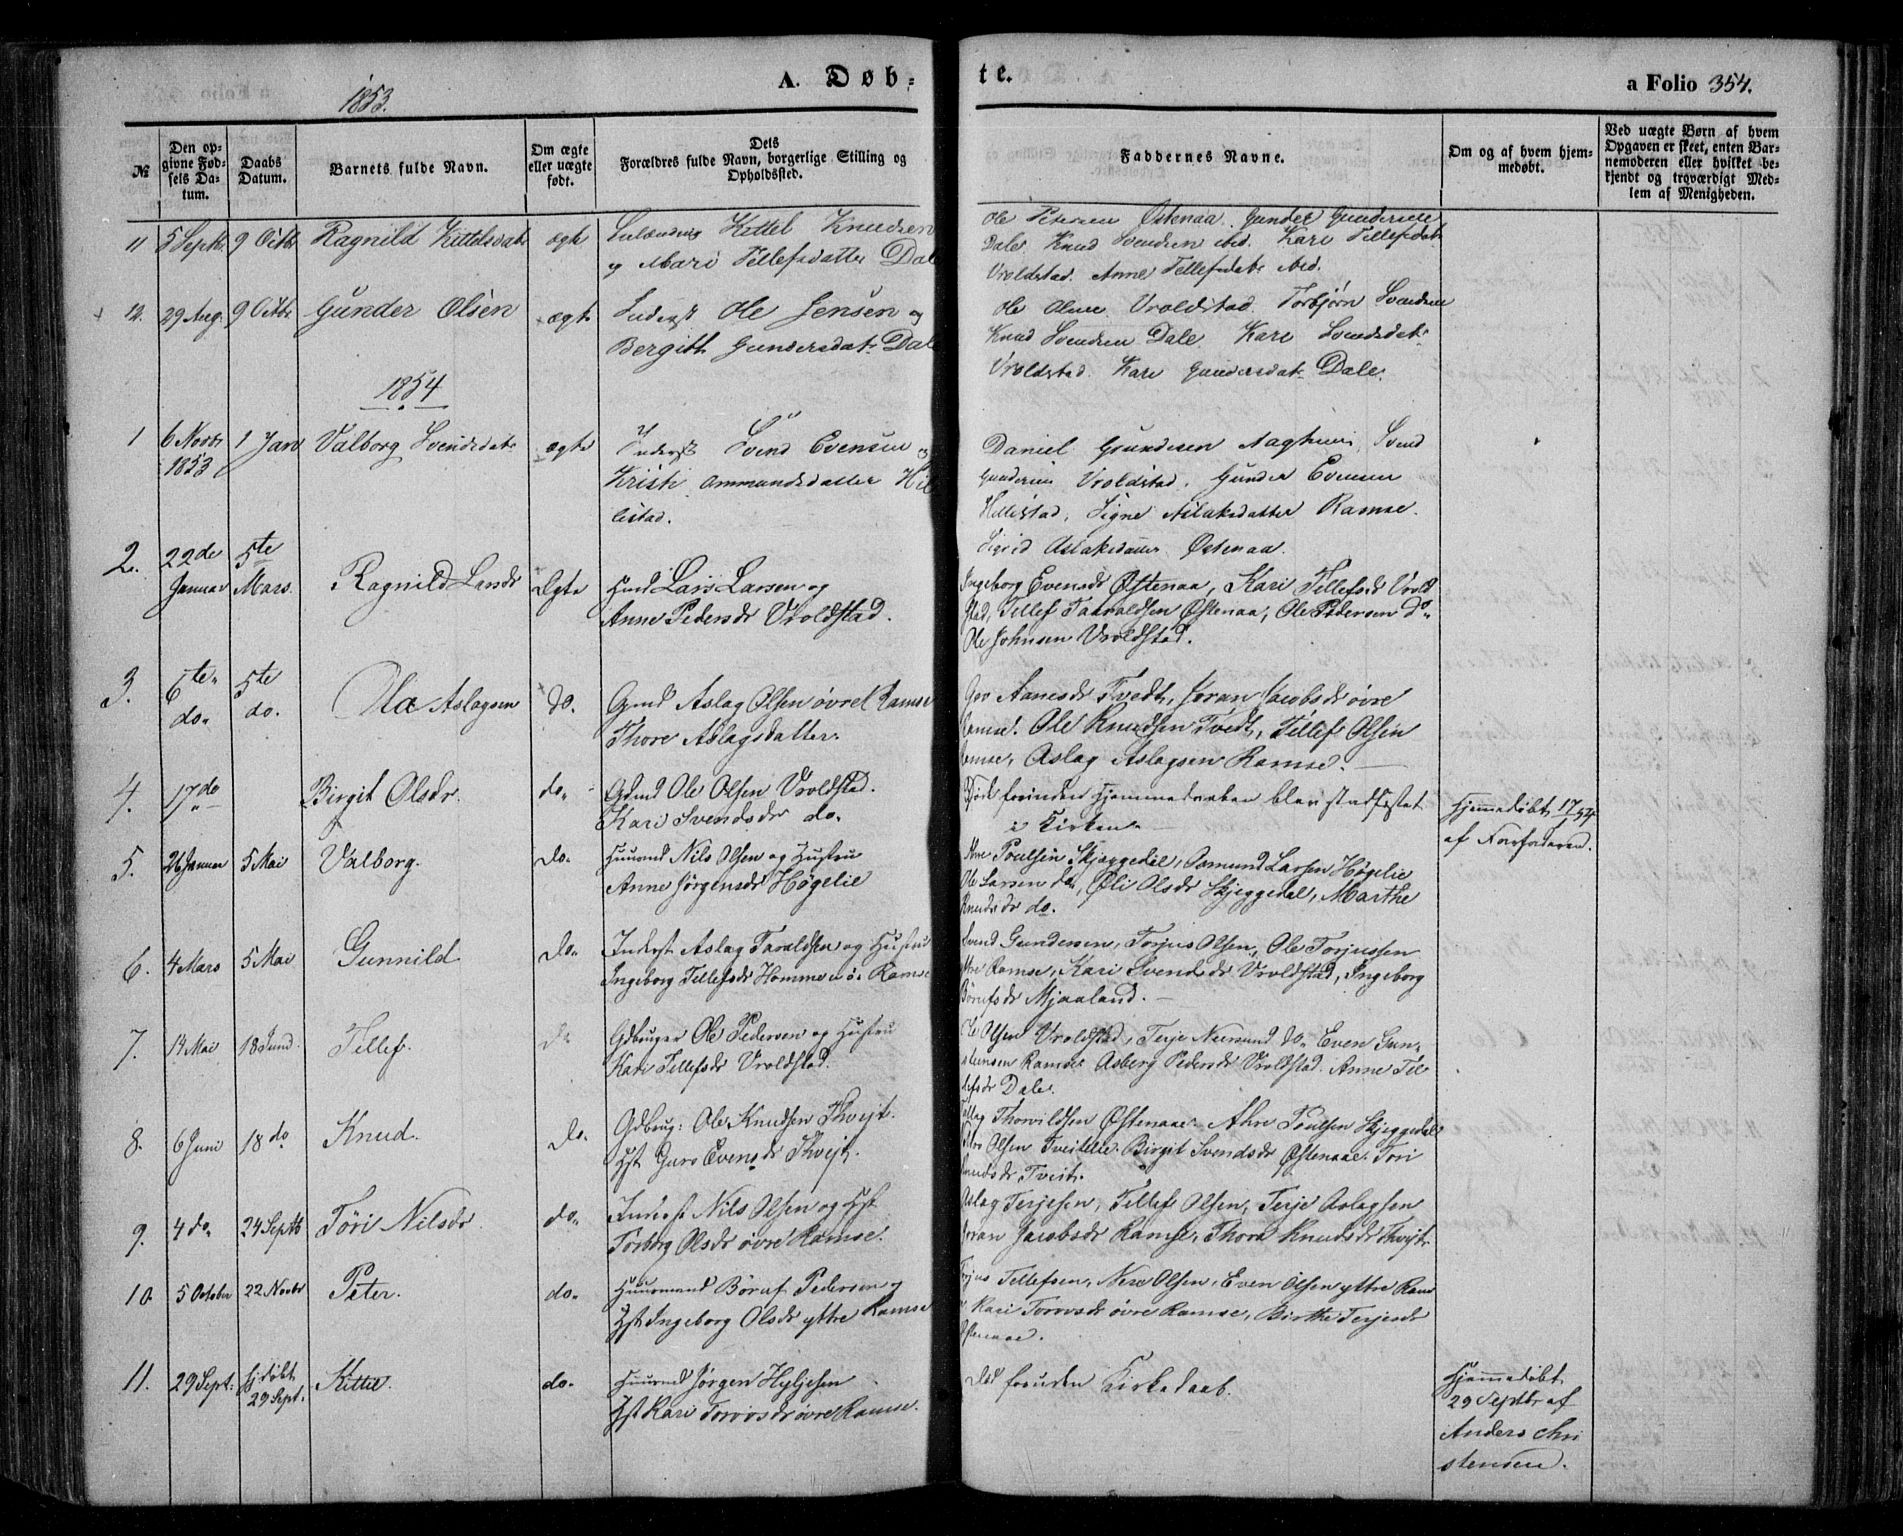 1853.
A. Døb-
te.
a Folio 354.
No
Den op-
givne Fød-
sels Da-
tum.
Daabs
Datum.
Barnets fulde Navn.
Om ægte
eller uægte
født.
Dets
Forældres fulde Navn, borgerlige Stilling og
Opholdssted.
Faddernes Navne.
Om og af hvem hjem-
medøbt.
Ved uægte Børn af hvem
Opgaven er skeet, enten Bar-
nemoderen eller hvilket be-
kjendt og troværdigt Med-
lem af Menigheden.
11 5 Septbr 9 Octbr Ragnild Kittelsdatr ægte Kittel Knudsen
og Mari Tellefsdatter Dale
Ole Petersen Østenaa Gunder Gundersen
Dale Knud Svendsen ibid. Kari Tellefsdatr
Vroldstad. Anne Tellefsdatr ibid.
12. 29 Aug. 9 Octbr Gunder Olsen ægte Inderst Ole Jensen og
Bergith Gundersdatr Dale
Ole Olsen Vroldstad. Torbjørn Svendsen
Knud Svendsen Dale Kari Svendsdatr
Vroldstad. Kari Gundersdatr Dale.
1854
1 6 Novbr 1853 1 Jan Valborg Svendsdatr ægte Inderst Svend Evensen og
Kristi Ommundsdatter Hil-
lestad.
Daniel Gundersen Svend
Gundersen Vroldstad. Gunder Evensen
Hillestad, Signe Aslaksdatter Ramse.
Sigrid Aslaksdatter Østenaa.
2. 22de Januar 5te Mars. Ragnild Larsdr Ægte Huusmd Lars Larsen og
Anne Pedersdr Vroldstad.
Ingeborg Evensdr Østenaa, Kari Tellefsd Vrold
stad, Tellef Taraldsen Østenaa, Ole Pedersen Do
Ole Johnsen Vroldstad.
3. 6te do. 5te do. Ola Aslagsen do. Gmd Aslag Olsen øvre Ramse
Thore Aslagsdatter.
Tvedt, Joran Jacobsdr øvre
Ramse. Ole Knudsen Tvedt, Tellef Olsen
Ramse, Aslag Aslagsen Ramse.
4. 17do Birgit Olsdr. do. Gdmd Ole Olsen Vroldstad.
Kari Svendsdr do.
Døde forinden Hjemmedaaben blev stadfæstet
i Kirken.
Hjemmedøbt 17/1 54
af Forfaderen.
5. 26 Januar 5 Mai Valborg. do. Huusmd Nils Olsen og Hustru
Anne Jørgensdr Høgelie
Poulsen Skjeggedal, Osmund Larsen Høgelie
Ole Larsen do, Øli Olsdr Skjeggedal, Marthe
Knudsdr do.
6. 4 Mars 5 Mai Gunnild do. Inderst Aslag Taraldsen og Hustru
Ingeborg Tellefsdr Homme Ramse
Svend Gundersen, Torjus Olsen, Ole Torjussen
Ramse, Kari Svendsdr Vroldstad, Ingeborg
Børufsdr Mjaaland.
7. 14 Mai 18 Juni Tellef. do Gdbruger Ole Pedersen og Hustru
Kari Tellefsdr Vroldstad.
Ole Olsen Vroldstad, Terje do. Even Gun-
stensen Ramse Asberg Pedersdr Vroldstad. Anne Tel
lefsdr Dale.
8. 6 Juni 18 do Knud. do. Gdbrug: Ole Knudsen Thveit.
Hst Guro Evensdr Thveit.
Thorvildsen Østenaae. Poulsen Skjeggedal
Olsen Tveitelie. Birgit Svendsdr Østenaae. Tori
Knudsdr Tveit.
9. 4 do. 24 Septb Tøri Nilsdr. do. Inderst Nils Olsen og Hst
Torborg Olsdr øvre Ramse.
Aslag Terjesen, Tellef Olsen, Terje Aslagsen
Joran Jacobsdr Ramse, Thora Knudsdr Thveit
10. 5 October 22 Novbr Peter. do. Huusmand Børuf Pedersen og
Hst Ingeborg Olsdr yttre Ramse
Torjus Tellefsen, Nere Olsen, Even Olsen yttre Ram
Kari Torovsdr øvre Ramse, Birthe Terjesdr
Østenaae.
11. 29 Sept. hj.døbt 29 Sept. Kittel. do. Huusmd Jørgen Hyljesen
Hst Kari Torovsdr øvre Ramse.
Død foruden Kirkedaab.
Hjemmedøbt
29 Septbr af
Anders Chri
stensen.